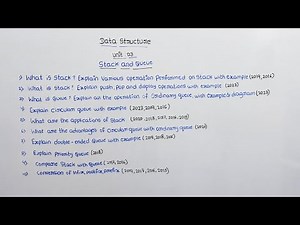 Data Structure
Unit 03
Stack and Queue
1) What is Stack? Explain various operation performed on Stack with example
2) What is Stack? Explain push, pop and display operations with example
3) What is Queue? Explain all the operation of Ordinary queue, with example & diagram
4) Explain circular queue with example
5) What are the applications of Stack
6) What are the advantages of circular queue with ordinary queue
7) Explain double-ended queue with example
8) Explain Priority queue
9) Compare Stack with Queue
10) Conversion of infix, postfix, prefix